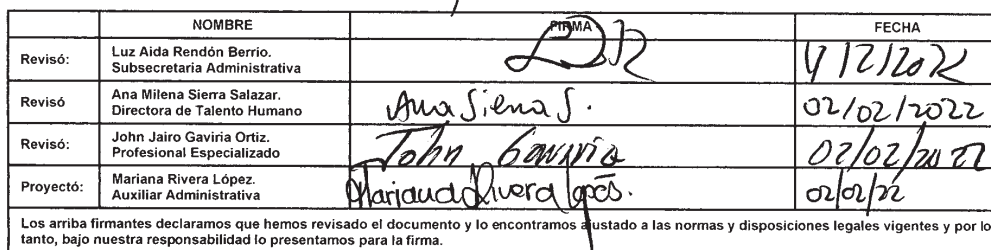 NOMBRE FIRMA FECHA
Revisó: Luz Aida Rendón Berrio. Subsecretaria Administrativa 4/2/2022
Revisó Ana Milena Sierra Salazar. Directora de Talento Humano Ana Sierra S. 02/02/2022
Revisó: John Jairo Gaviria Ortiz. Profesional Especializado John Gaviria 02/02/2022
Proyectó: Mariana Rivera López. Auxiliar Administrativa Mariana Rivera López. 02/02/22
Los arriba firmantes declaramos que hemos revisado el documento y lo encontramos ajustado a las normas y disposiciones legales vigentes y por lo
tanto, bajo nuestra responsabilidad lo presentamos para la firma.